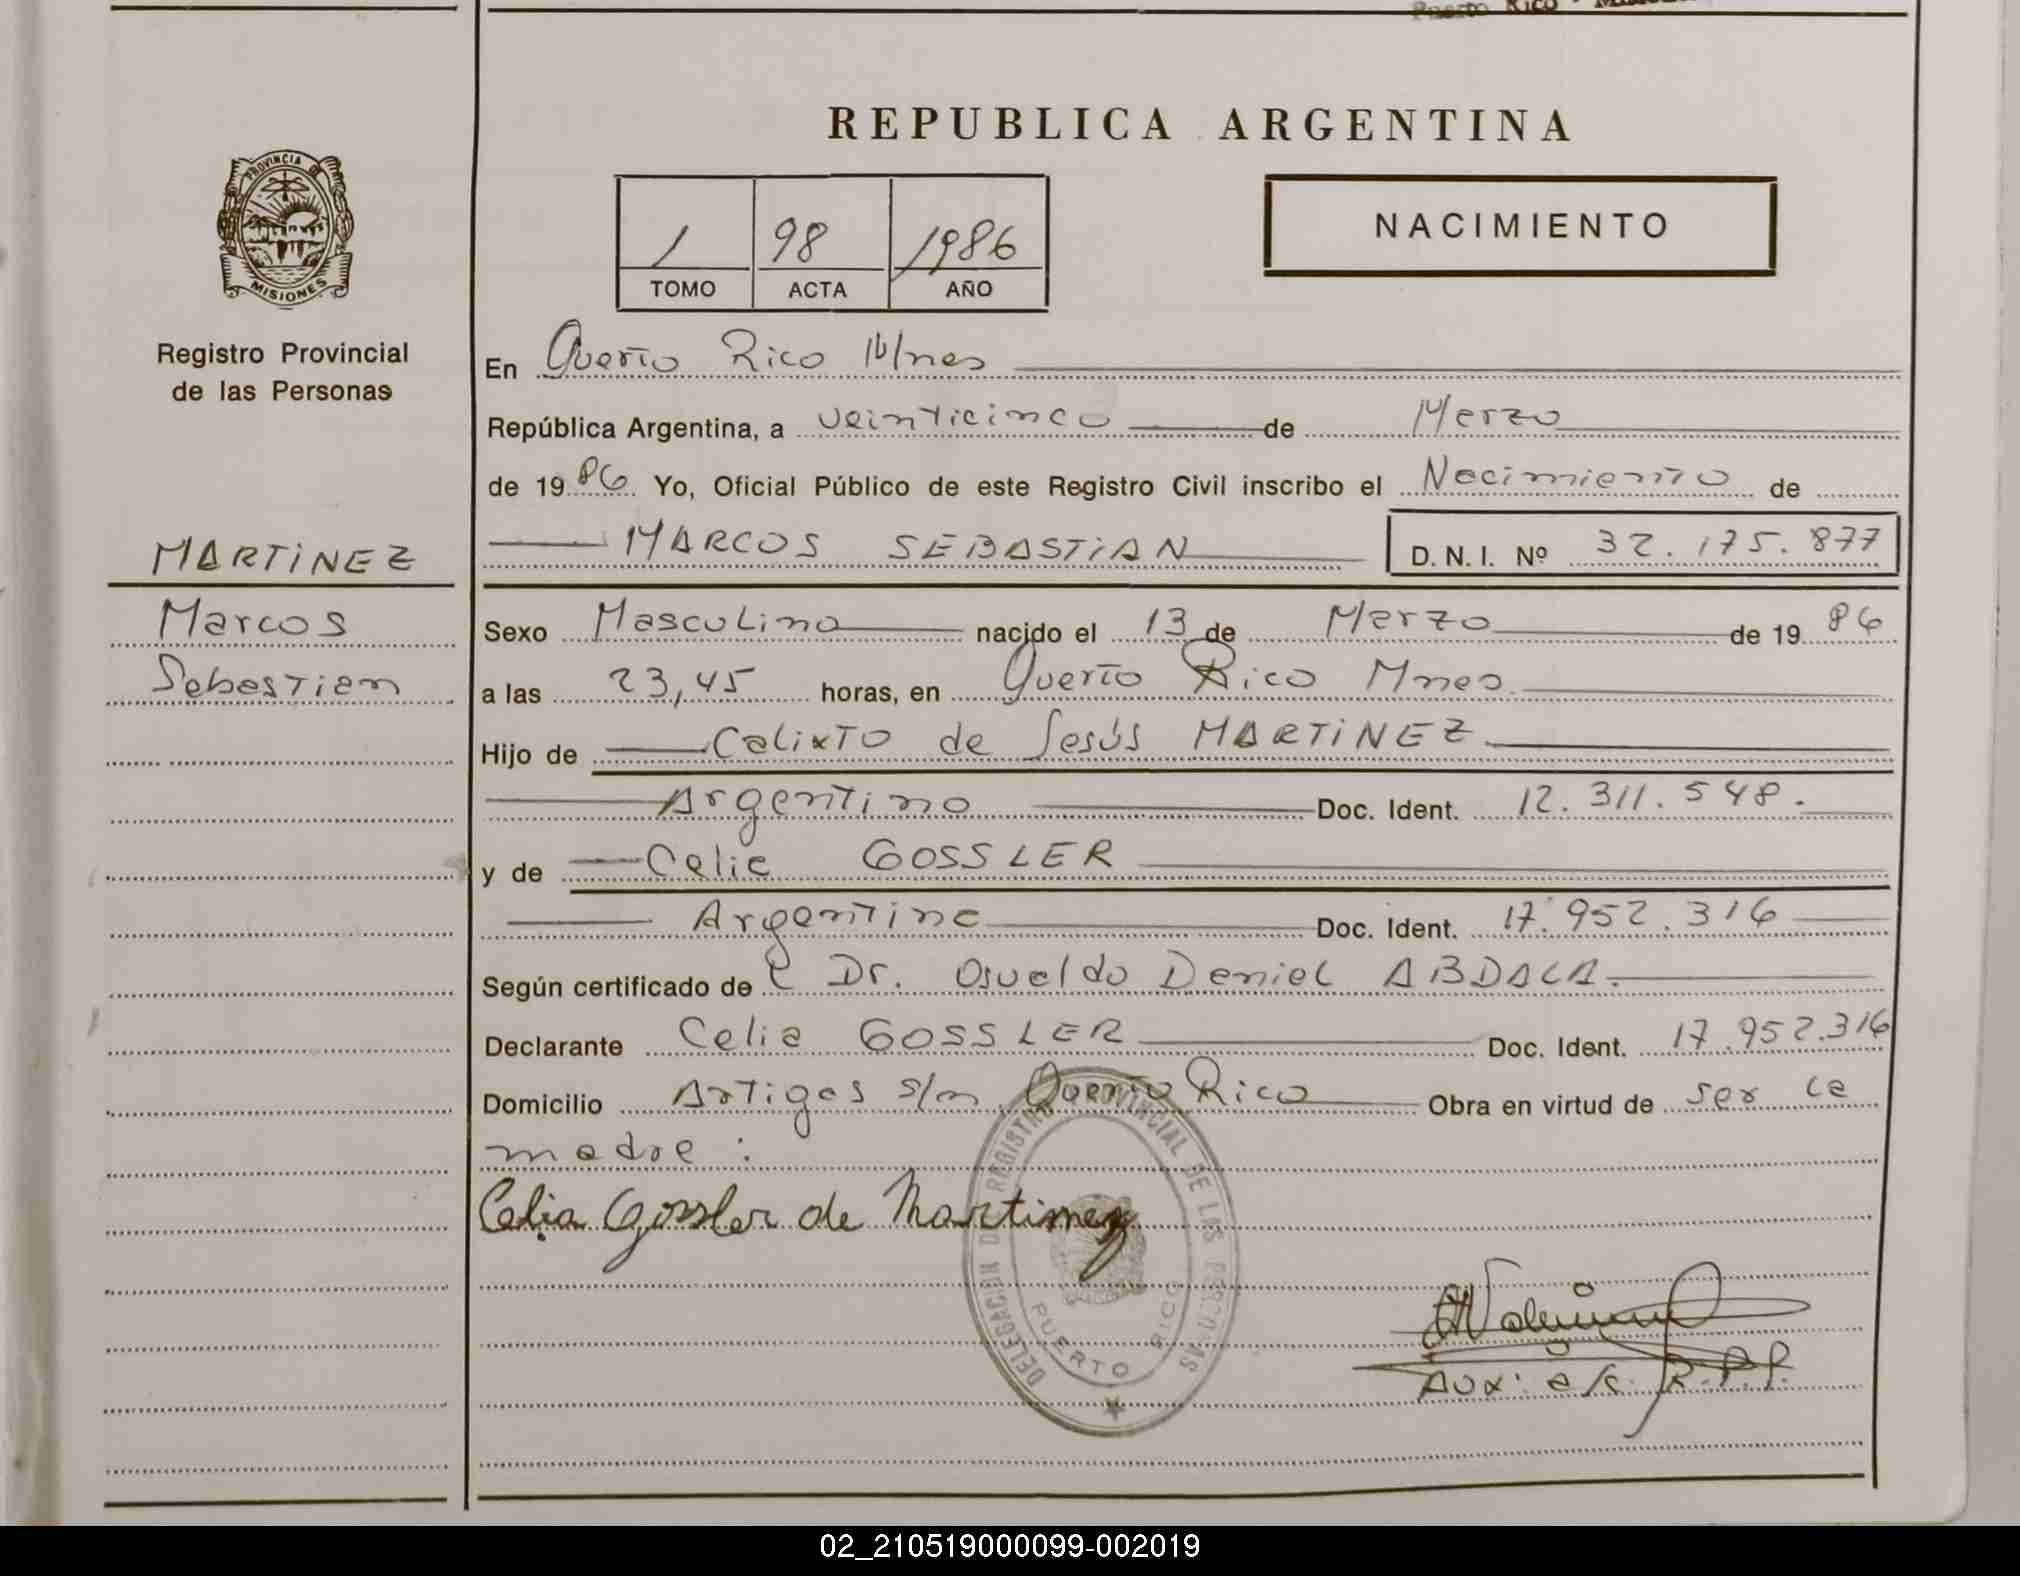 Puerto Rico
REPUBLICA ARGENTINA
PROVINCIA DE
MISIONES
1 98 1986
TOMO ACTA AÑO
NACIMIENTO
Registro Provincial
de las Personas
En Puerto Rico Mnes
República Argentina, a veinticinco de Marzo
de 1986 Yo, Oficial Público de este Registro Civil inscribo el Nacimiento de
MARCOS SEBASTIAN D. N. I. Nº 32.175.877
MARTINEZ
Marcos
Sebastian
Sexo Masculino nacido el 13 de Marzo de 1986
a las 23,45 horas, en Puerto Rico Mnes.
Hijo de Calixto de Jesús MARTINEZ
Argentino Doc. Ident. 12.311.548.
y de Celia GOSSLER
Argentina Doc. Ident. 17.952.316
Según certificado de Dr. Osvaldo Daniel ABDALA.
Declarante Celia GOSSLER Doc. Ident. 17.952.316
Domicilio Artigas s/n Puerto Rico Obra en virtud de ser la
madre:
Celia Gossler de Martinez
DELEGACION DE REGISTRO PROVINCIAL DE LAS PERSONAS
PUERTO RICO
Aux: a/c. R.P.P.
02_210519000099-002019